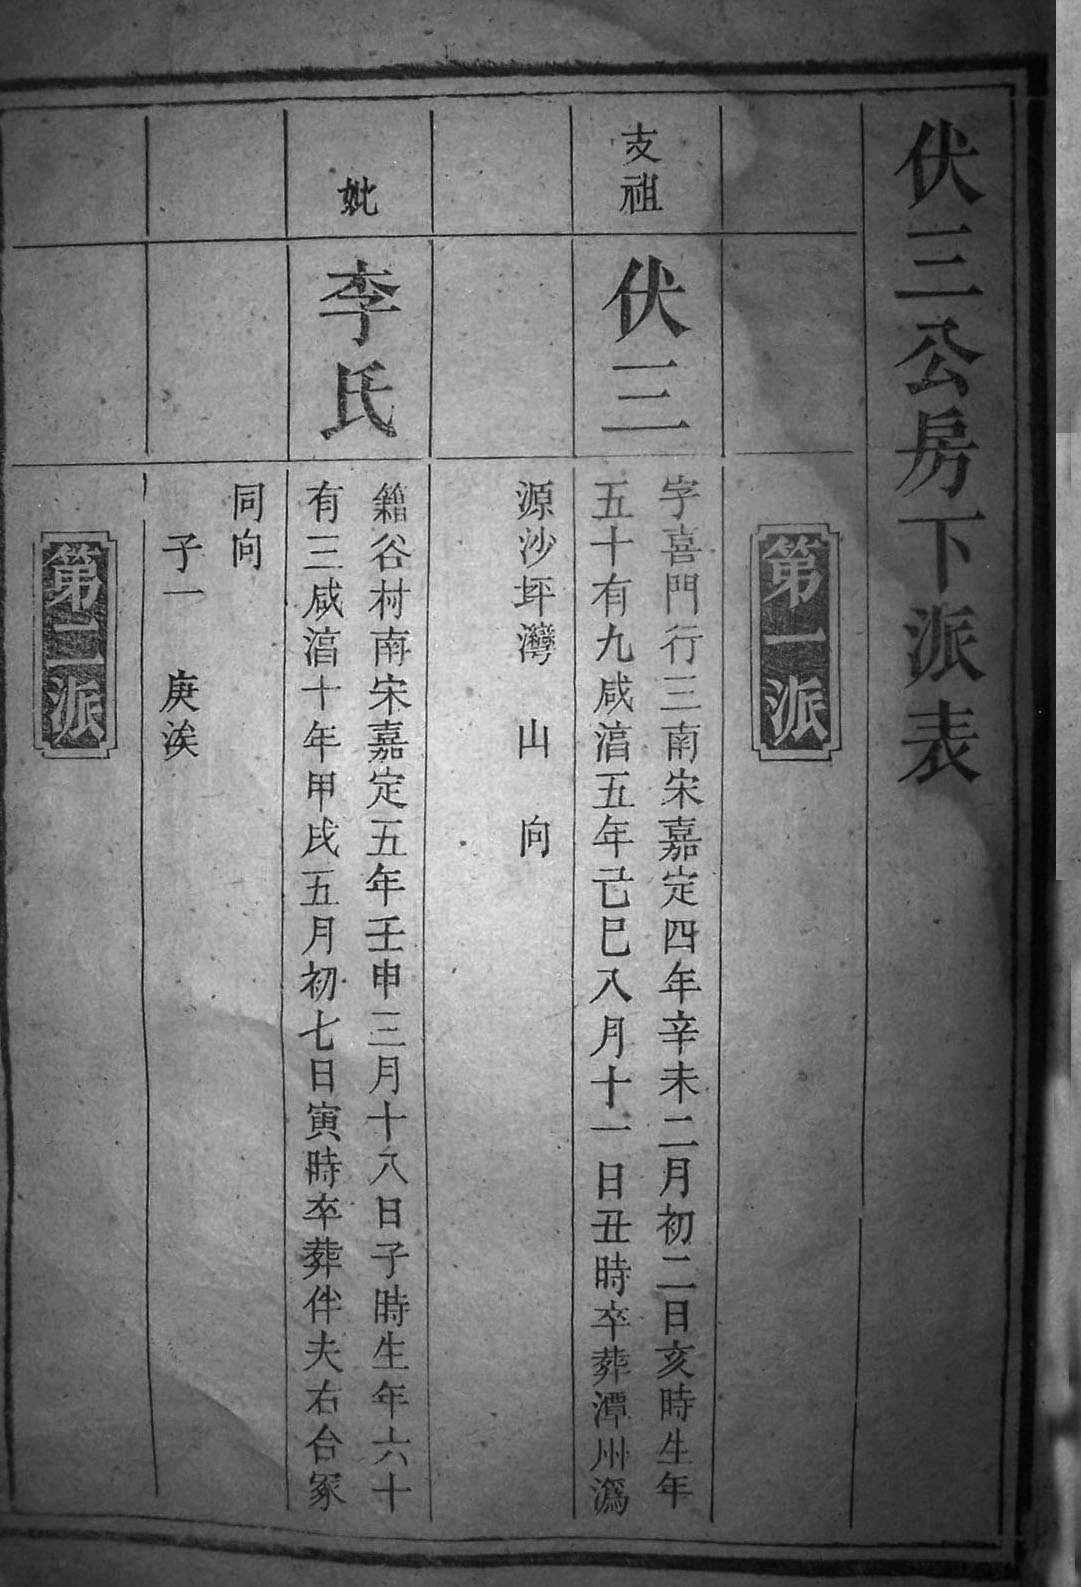 伏三公房下派表
第一派
支祖
伏三
字喜門行三南宋嘉定四年辛未二月初二日亥時生年
五十有九咸淯五年己巳八月十一日丑時卒葬潭州潙
源沙坪灣 山 向
妣
李氏
籍谷村南宋嘉定五年壬申三月十八日子時生年六十
有三咸淯十年甲戌五月初七日寅時卒葬伴夫右合冢
同向
子一 庚涘
第二派